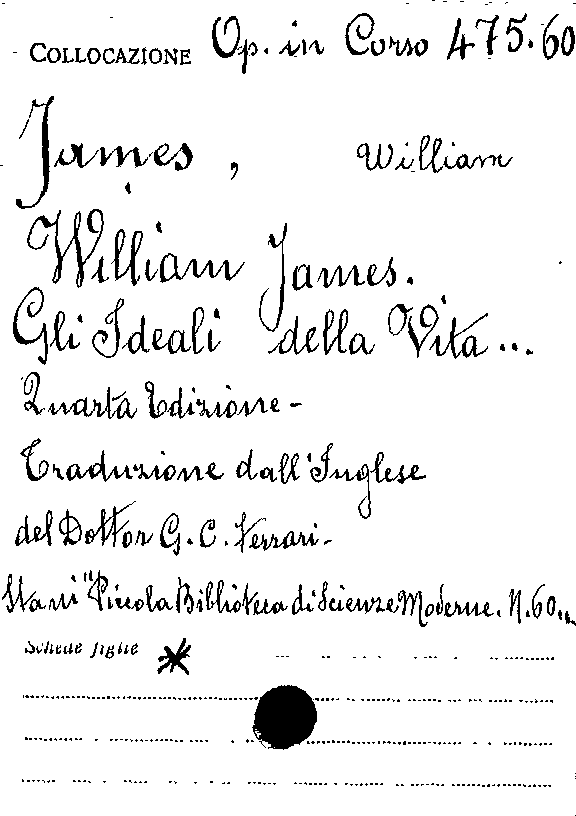 COLLOCAZIONE Op. in Corso 475.60
James, William
William James.
Gli Ideali della Vita...
Quarta Edizione-
Traduzione dall'Inglese
del Dottor G. C. Ferrari-
"Piccola Biblioteca di Scienze Moderne. N. 60...
Schede figlie *